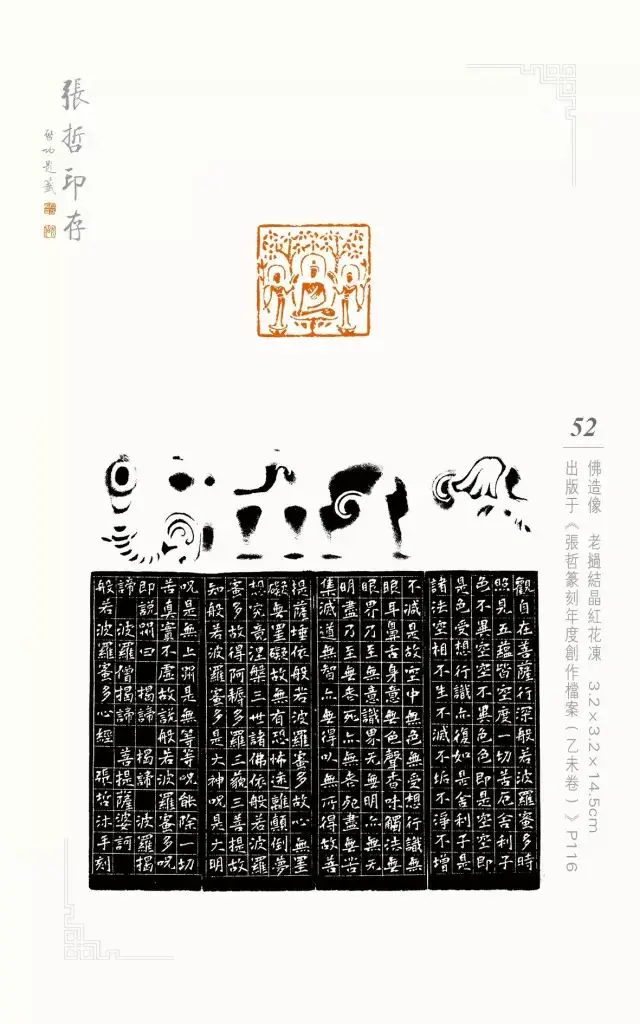 張哲印存
啓功題簽
52
佛造像　老撾結晶紅花凍　3.2×3.2×14.5cm
出版于《張哲篆刻年度創作檔案（乙未卷）》P116
觀自在菩薩行深般若波羅蜜多時
照見五蘊皆空度一切苦厄舍利子
色不異空空不異色色即是空空即
是色受想行識亦復如是舍利子是
諸法空相不生不滅不垢不淨不增
不減是故空中無色無受想行識無
眼耳鼻舌身意無色聲香味觸法無
眼界乃至無意識界無無明亦無無
明盡乃至無老死亦無老死盡無苦
集滅道無智亦無得以無所得故菩
提薩埵依般若波羅蜜多故心無罣
礙無罣礙故無有恐怖遠離顛倒夢
想究竟涅槃三世諸佛依般若波羅
蜜多故得阿耨多羅三藐三菩提故
知般若波羅蜜多是大神呪是大明
呪是無上呪是無等等呪能除一切
苦真實不虛故說般若波羅蜜多呪
即說呪曰　揭諦　揭諦　波羅揭
諦　波羅僧揭諦　菩提薩婆訶
般若波羅蜜多心經　張哲沐手刻